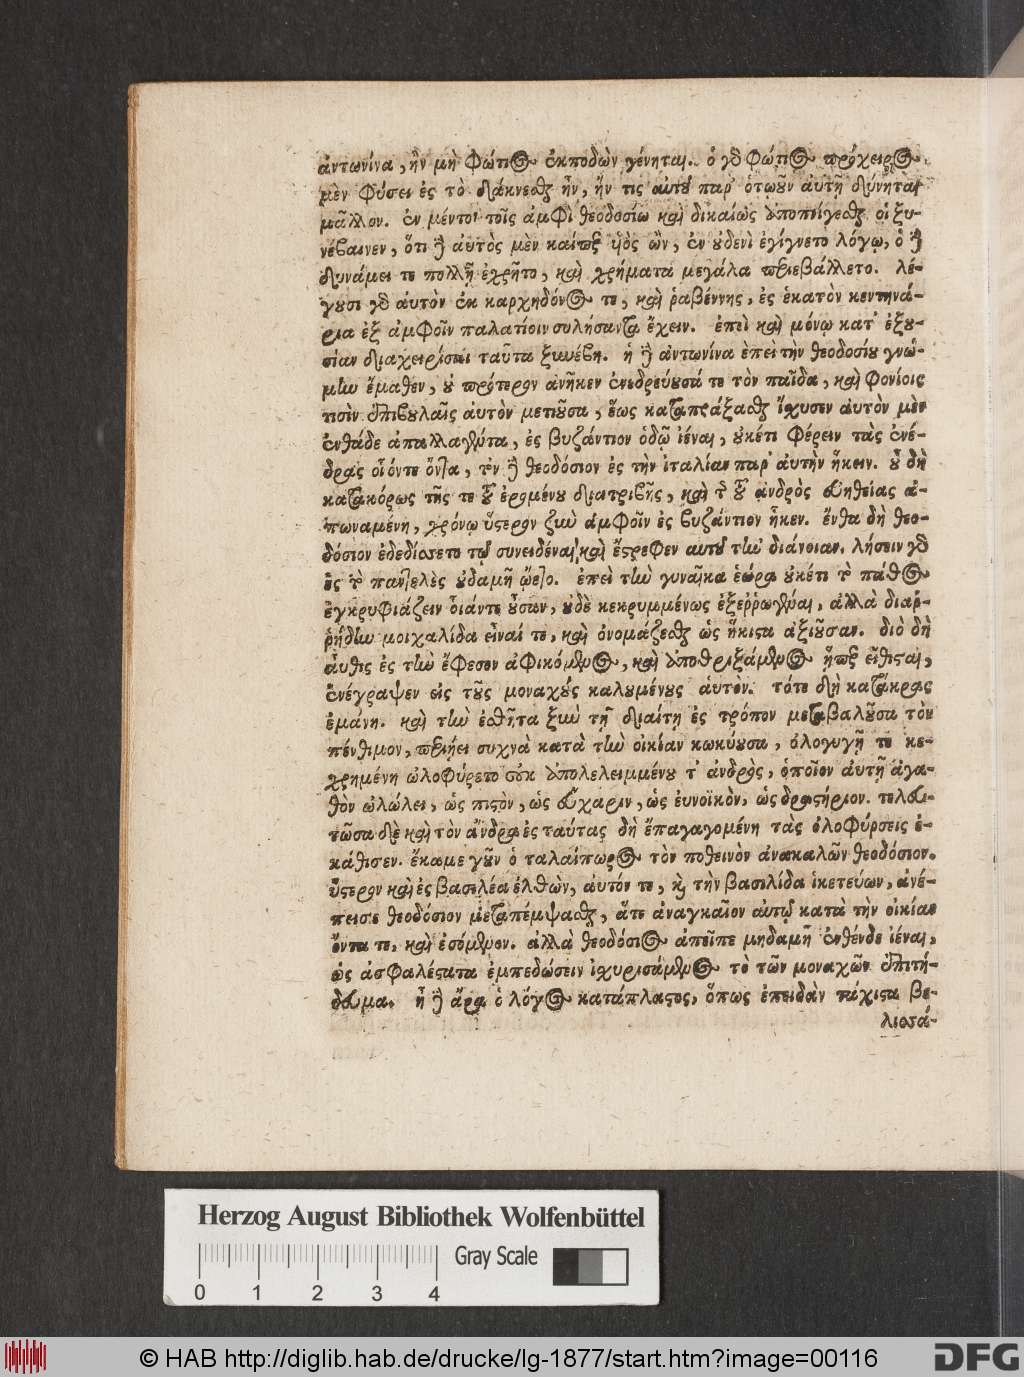 ἀντωνίνα, ἢν μὴ Φώτιος ἐκποδὼν γένηται. ὁ γὸ Φώτιος πρόχειρος
μὲν φύσει ἐς τὸ δάκνεσθαι ἦν, ἤν τις αὐτοῦ παρ' ὁτῳοῦν αὐτῇ δύνηται
μᾶλλον. ἐν μέντοι τοῖς ἀμφὶ θεοδοσίω καὶ δικαίως ἀποπνίγεσθαι οἱ ξυ-
νέβαινεν, ὅτι δὲ αὐτὸς μὲν καίπερ ὑὸς ὢν, ἐν οὐδενὶ ἐγίγνετο λόγῳ, ὁ δὲ
δυνάμει τε πολλῇ ἐχρῆτο, καὶ χρήματα μεγάλα περιεβάλλετο. λέ-
γουσι γὸ αὐτὸν ἐκ καρχηδόνος τε, καὶ ῥαβέννης, ἐς ἑκατὸν κεντηνά-
ρια ἐξ ἀμφοῖν παλατίοιν συλήσαντα ἔχειν. ἐπεὶ καὶ μόνῳ κατ' ἐξου-
σίαν διαχειρίσαι ταῦτα ξυνέβη. ἡ δὲ ἀντωνίνα ἐπεὶ τὴν θεοδοσίου γνώ-
μην ἔμαθεν, οὐ πρότερον ἀνῆκεν ἐνεδρεύουσά τε τὸν παῖδα, καὶ φονίοις
τισὶν ἐπιβουλαῖς αὐτὸν μετιοῦσα, ἕως καταπράξασθαι ἴχυσεν αὐτὸν μὲν
ἐνθάδε ἀπαλλαγέντα, ἐς βυζάντιον ὁδῷ ἰέναι, οὐκέτι φέρειν τὰς ἐνέ-
δρας οἷόντε ὄντα, τὸν δὲ θεοδόσιον ἐς τὴν ἰταλίαν παρ' αὐτὴν ἥκειν. οὗ δὴ
κατακόρως τῆς τε τοῦ ἐρωμένου διατριβῆς, καὶ τῆς τοῦ ἀνδρὸς εὐηθείας ἀ-
πωναμένη, χρόνῳ ὕστερον ξὺν ἀμφοῖν ἐς βυζάντιον ἧκεν. ἔνθα δὴ θεο-
δόσιον ἐδεδίσσετο τῷ συνειδέναι, καὶ ἔστρεφεν αὐτοῦ τὴν διάνοιαν. λήσειν γὸ
ἐς τὸ παντελὲς οὐδαμῆ ᾤετο. ἐπεὶ τὴν γυναῖκα ἑώρα οὐκέτι τὸ πάθος
ἐγκρυφιάζειν οἵαντε οὖσαν, οὐδὲ κεκρυμμένως ἐξεῤῥωγέναι, ἀλλὰ διαῤ-
ῥήδην μοιχαλίδα εἶναί τε, καὶ ὀνομάζεσθαι ὡς ἥκιστα ἀξιοῦσαν. διὸ δὴ
αὖθις ἐς τὴν ἔφεσον ἀφικόμενος, καὶ ἀποθριξάμενος ᾗπερ εἴθισται,
ἐνέγραψεν εἰς τοὺς μοναχοὺς καλουμένους αὑτόν. τότε δὴ κατάκρας
ἐμάνη. καὶ τὴν ἐσθῆτα ξὺν τῇ διαίτῃ ἐς τρόπον μεταβαλοῦσα τὸν
πένθιμον, περιῄει συχνὰ κατὰ τὴν οἰκίαν κωκύουσα, ὀλολυγῇ τε κε-
χρημένη ὠλοφύρετο οὐκ ἀπολελειμμένου τ' ἀνδρὸς, ὁποῖον αὐτῇ ἀγα-
θὸν ὠλώλει, ὡς πιστὸν, ὡς εὔχαριν, ὡς εὐνοϊκὸν, ὡς δραστήριον. τελευ-
τῶσα δὲ καὶ τὸν ἄνδρα ἐς ταύτας δὴ ἐπαγαγομένη τὰς ὀλοφύρσεις ἐ-
κάθισεν. ἔκλαιε γοῦν ὁ ταλαίπωρος τὸν ποθεινὸν ἀνακαλῶν θεοδόσιον.
ὕστερον καὶ ἐς βασιλέα ἐλθὼν, αὐτόν τε, καὶ τὴν βασιλίδα ἱκετεύων, ἀνέ-
πεισε θεοδόσιον μεταπέμψασθαι, ἅτε ἀναγκαῖον αὐτῷ κατὰ τὴν οἰκίαν
ὄντα τε, καὶ ἐσόμενον. ἀλλὰ θεοδόσιος ἀπεῖπε μηδαμῆ ἐνθένδε ἰέναι,
ὡς ἀσφαλέστατα ἐμπεδώσειν ἰχυρισάμενος τὸ τῶν μοναχῶν ἐπιτή-
δευμα. ἦ δὲ ἄρα ὁ λόγος κατάπλαστος, ὅπως ἐπειδὰν τάχιστα βε-
λισσά-
Herzog August Bibliothek Wolfenbüttel
Gray Scale
0 1 2 3 4
© HAB http://diglib.hab.de/drucke/lg-1877/start.htm?image=00116
DFG